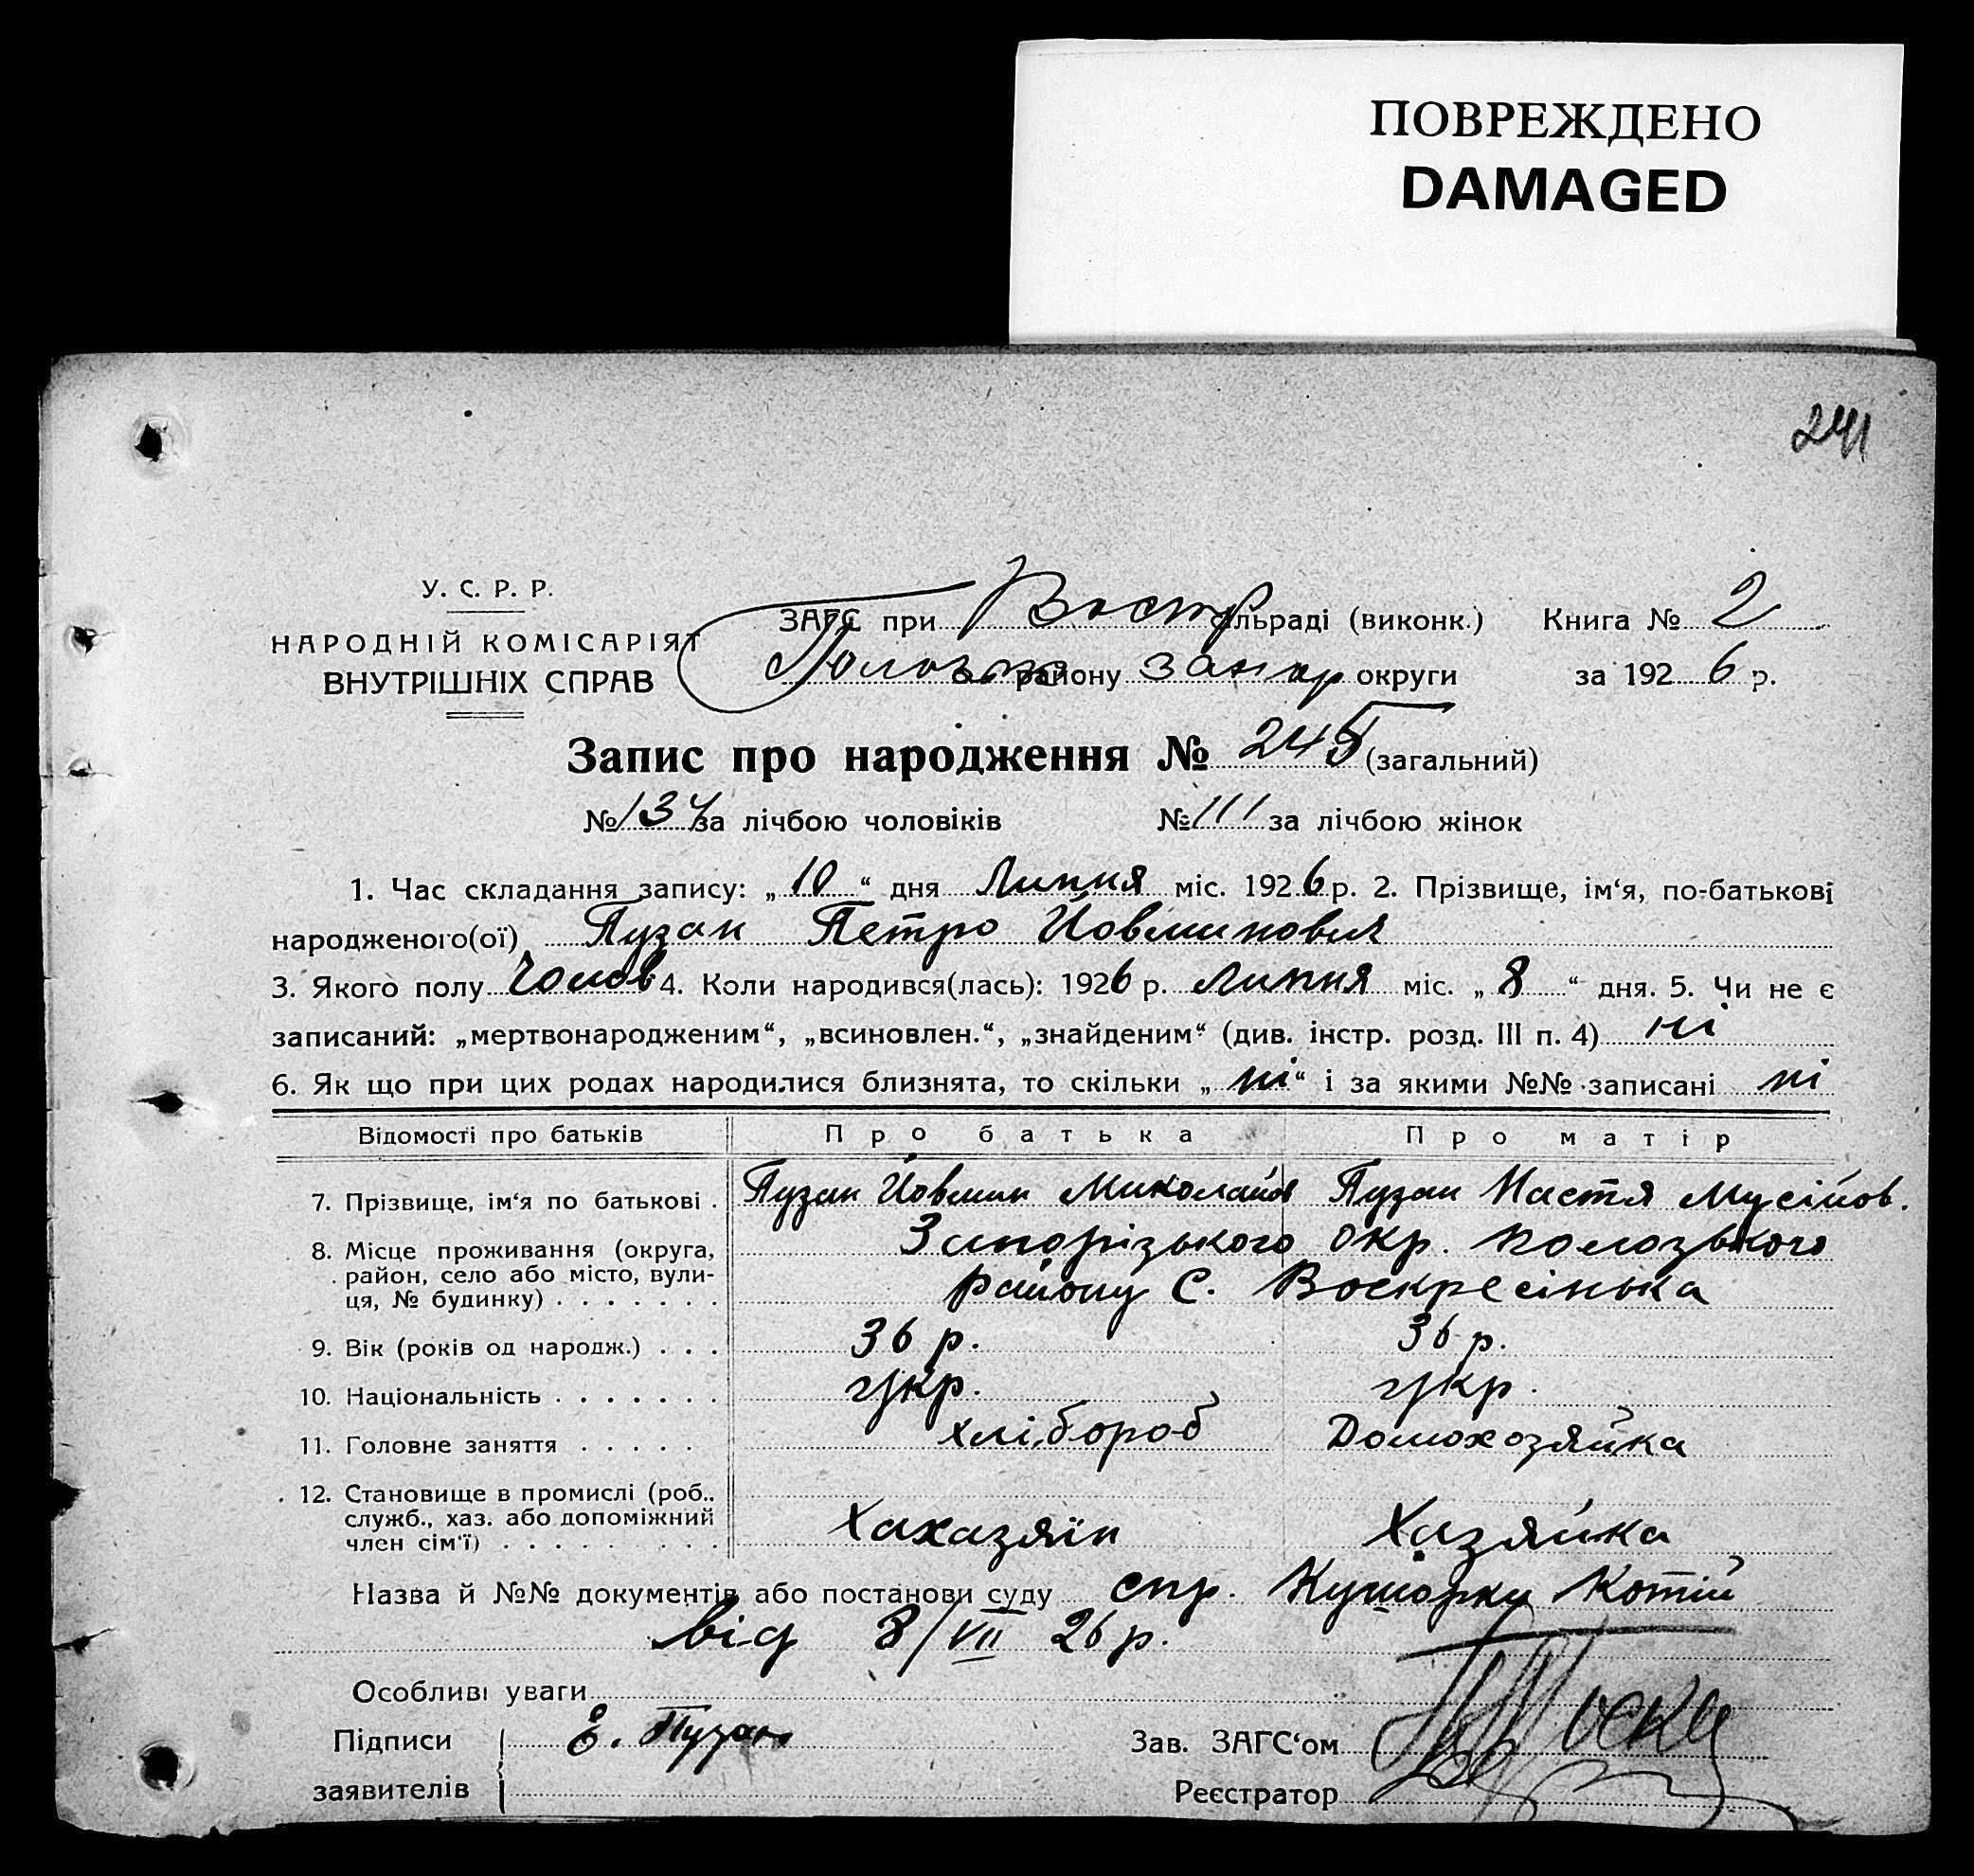 ПОВРЕЖДЕНО
DAMAGED
241
У. С. Р. Р.
НАРОДНІЙ КОМІСАРІЯТ
ВНУТРІШНІХ СПРАВ
ЗАГС при Воскр сільраді (виконк.) Книга № 2
району Запор округи за 1926 р.
Запис про народження № 245 (загальний)
№ 134 за лічбою чоловіків № 111 за лічбою жінок
1. Час складання запису: „10“ дня Липня міс. 1926 р. 2. Прізвище, ім‘я, по-батькові
народженого(ої) Пузан Петро Йовминович
3. Якого полу Чолов 4. Коли народився(лась): 1926 р. Липня міс. „8“ дня. 5. Чи не є
записаний: „мертвонародженим“, „всиновлен.“, „знайденим“ (див. інстр. розд. III п. 4) ні
6. Як що при цих родах народилися близнята, то скільки „ні“ і за якими №№ записані ні
Відомості про батьків Про батька Про матір
7. Прізвище, ім‘я по батькові . Пузан Йовмин Миколайов Пузан Настя Мусійов.
8. Місце проживання (округа, Запорізького окр. Полозького
район, село або місто, вули- району С. Воскресінька
ця, № будинку) . . . . . . .
9. Вік (років од народж.) . . . 36 р. 36 р.
10. Національність . . . . . . . укр. укр.
11. Головне заняття . . . . . хлібороб Домохозяйка
12. Становище в промислі (роб.,
служб., хаз. або допоміжний Хахазяїн Хазяйка
член сім‘ї) . . . . . . . . .
Назва й №№ документів або постанови суду спр. Кушорки Котій
від 8/VII 26 р.
Особливі уваги
Підписи Є. Пузан Зав. ЗАГС‘ом
заявителів Реєстратор